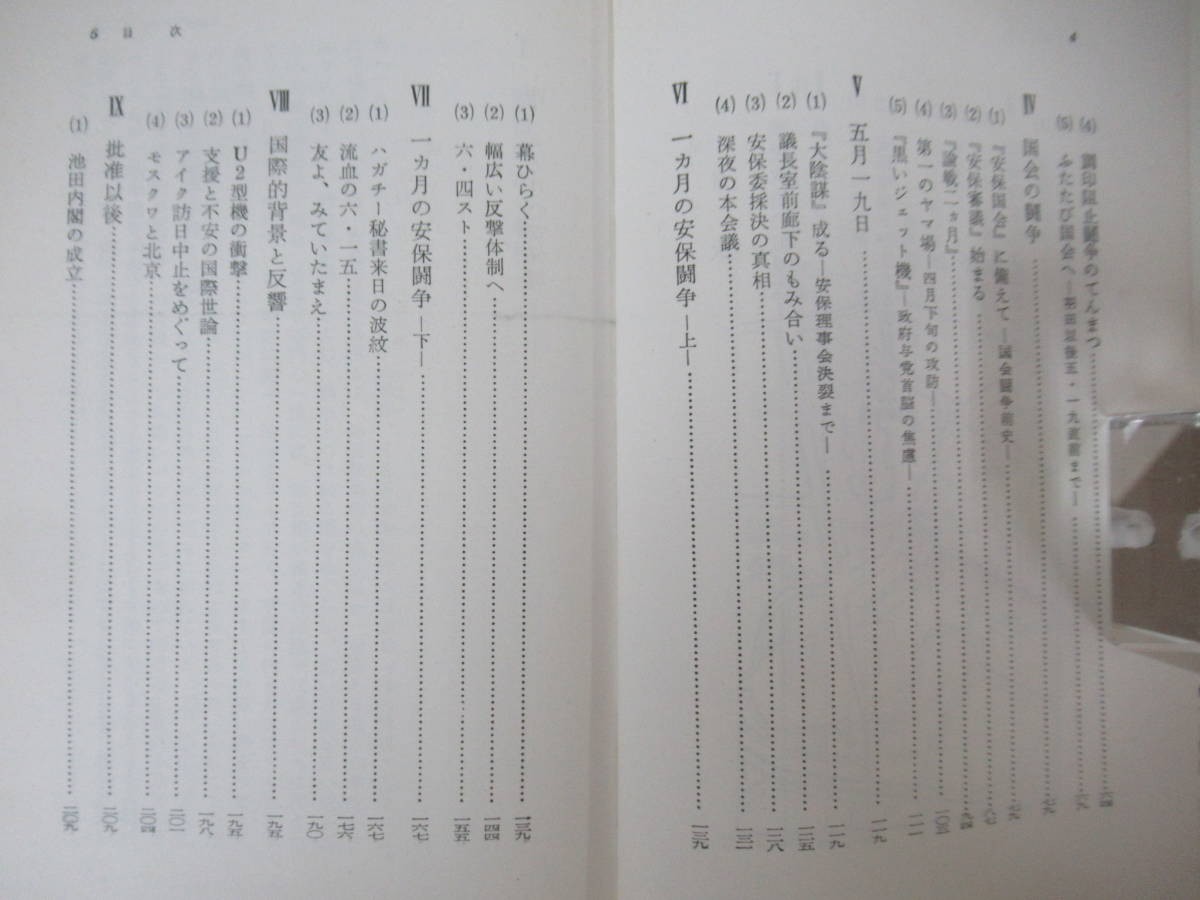 4
(4) 調印阻止闘争のてんまつ……六四
(5) ふたたび国会へ―羽田以後五・一九直前まで―……六八
Ⅳ 国会の闘争……七九
(1) 『安保国会』に備えて―国会闘争前史―……七九
(2) 『安保審議』始まる
(3) 『論戦二ヵ月』……九四
(4) 第一のヤマ場―四月下旬の攻防―……一〇四
(5) 『黒いジェット機』―政府与党首脳の焦慮―……一一一
Ⅴ 五月一九日……一一九
(1) 『大陰謀』成る―安保理事会決裂まで―……一一九
(2) 議長室前廊下のもみ合い……一二五
(3) 安保委採決の真相……一二八
(4) 深夜の本会議……一三一
Ⅵ 一カ月の安保闘争―上―……一三九
5 目次
(1) 幕ひらく……一三九
(2) 幅広い反撃体制へ……一四四
(3) 六・四スト……一五五
Ⅶ 一カ月の安保闘争―下―……一六七
(1) ハガチー秘書来日の波紋……一六七
(2) 流血の六・一五……一七六
(3) 友よ、みていたまえ……一九〇
Ⅷ 国際的背景と反響……一九五
(1) U2型機の衝撃……一九五
(2) 支援と不安の国際世論……一九八
(3) アイク訪日中止をめぐって……二〇一
(4) モスクワと北京……二〇四
Ⅸ 批准以後……二〇九
(1) 池田内閣の成立……二〇九